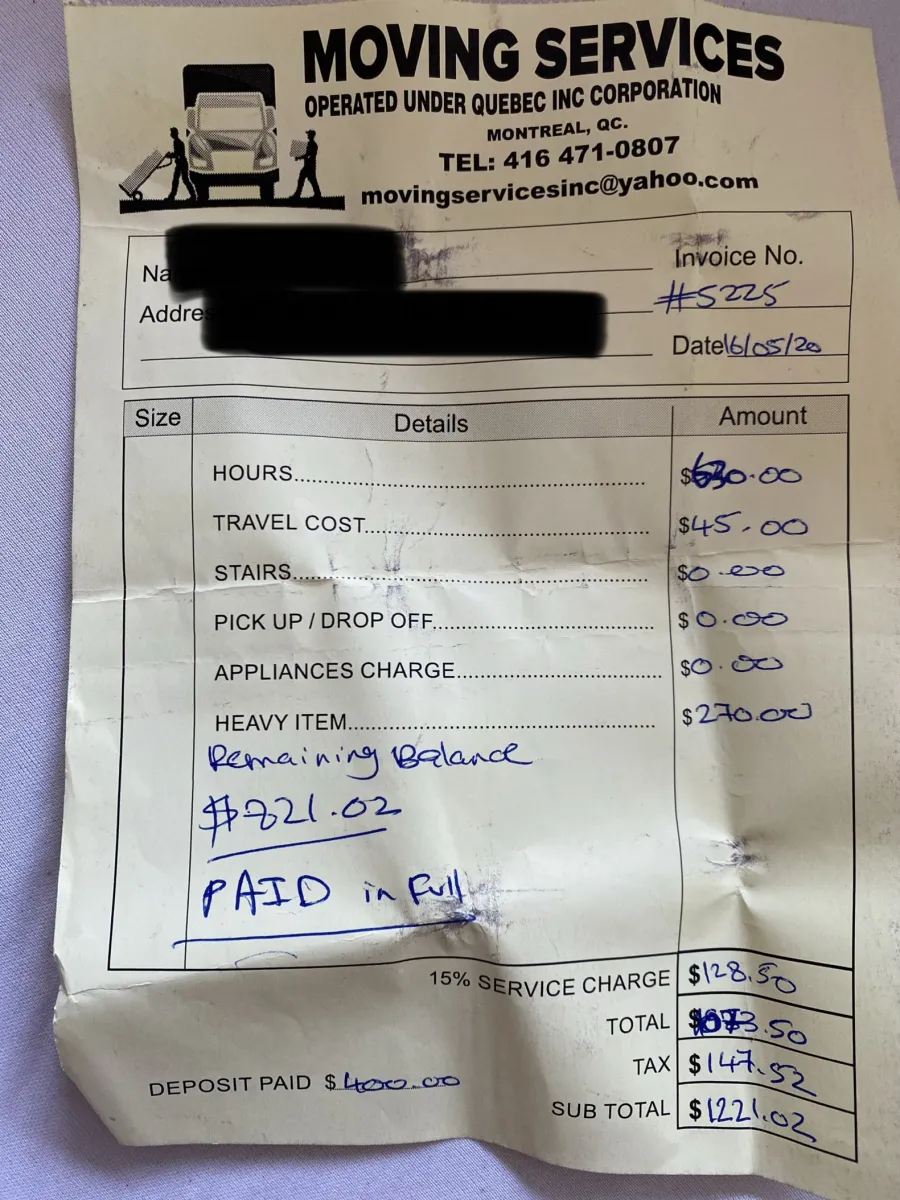 MOVING SERVICES
OPERATED UNDER QUEBEC INC CORPORATION
MONTREAL, QC.
TEL: 416 471-0807
movingservicesinc@yahoo.com
Na
Invoice No.
#5225
Addre
Date 16/05/20
Size Details Amount
HOURS........ $630.00
TRAVEL COST........ $45.00
STAIRS........ $0.00
PICK UP / DROP OFF........ $0.00
APPLIANCES CHARGE........ $0.00
HEAVY ITEM........ $270.00
Remaining Balance
$821.02
PAID in Full
15% SERVICE CHARGE $128.50
TOTAL $1073.50
TAX $147.52
DEPOSIT PAID $400.00
SUB TOTAL $1221.02